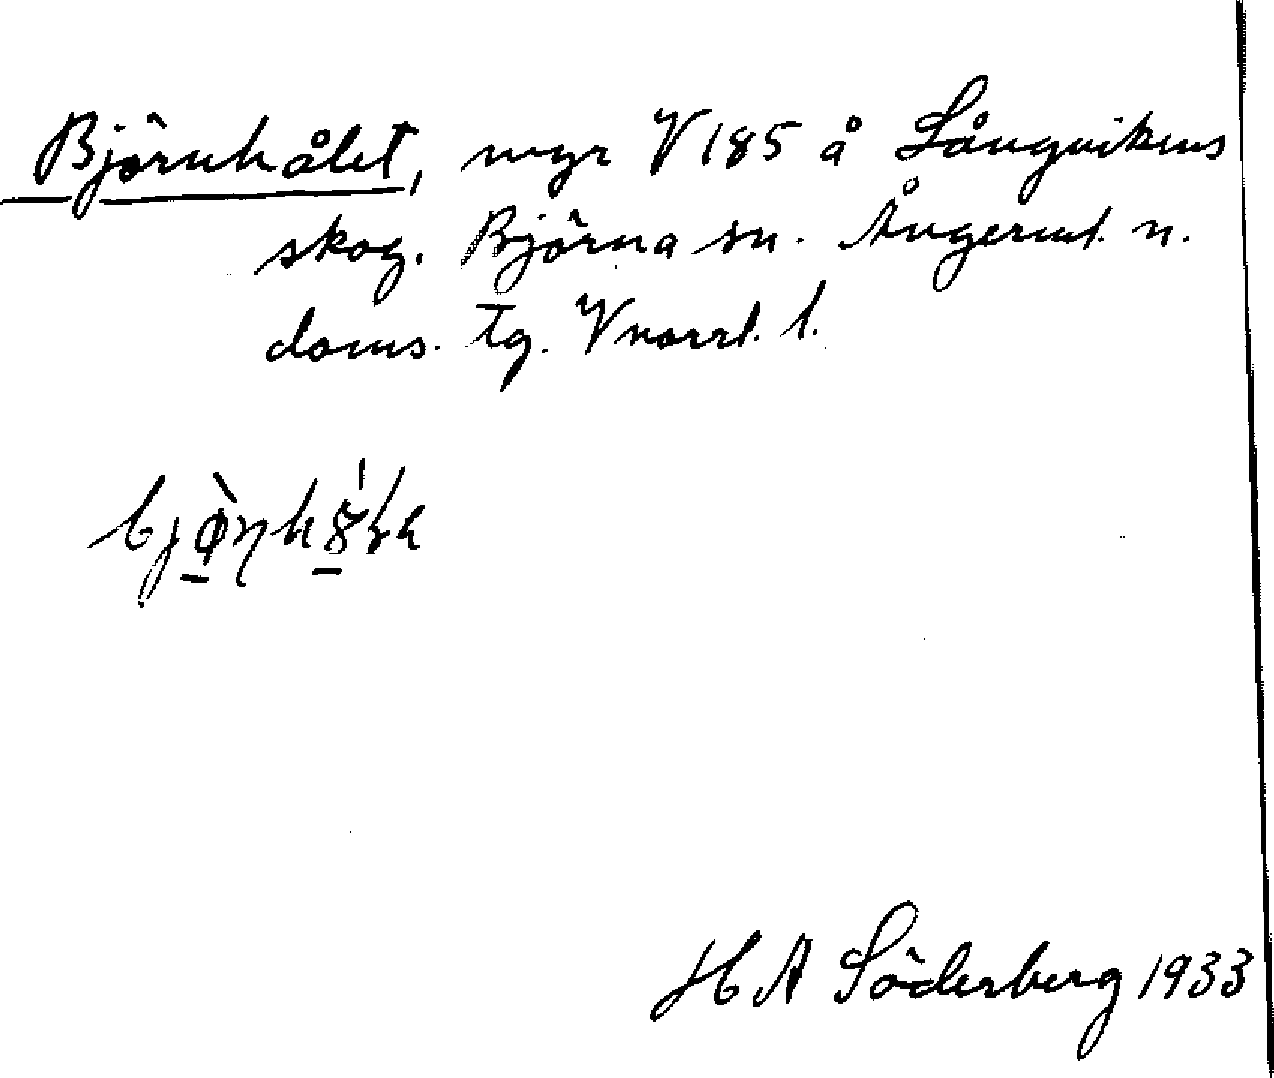 Björnhålet, myr V 185 å Långvikens
skog. Björna sn. Ångerml. n.
doms. tg. Vnorrl. l.
H A Söderberg 1933